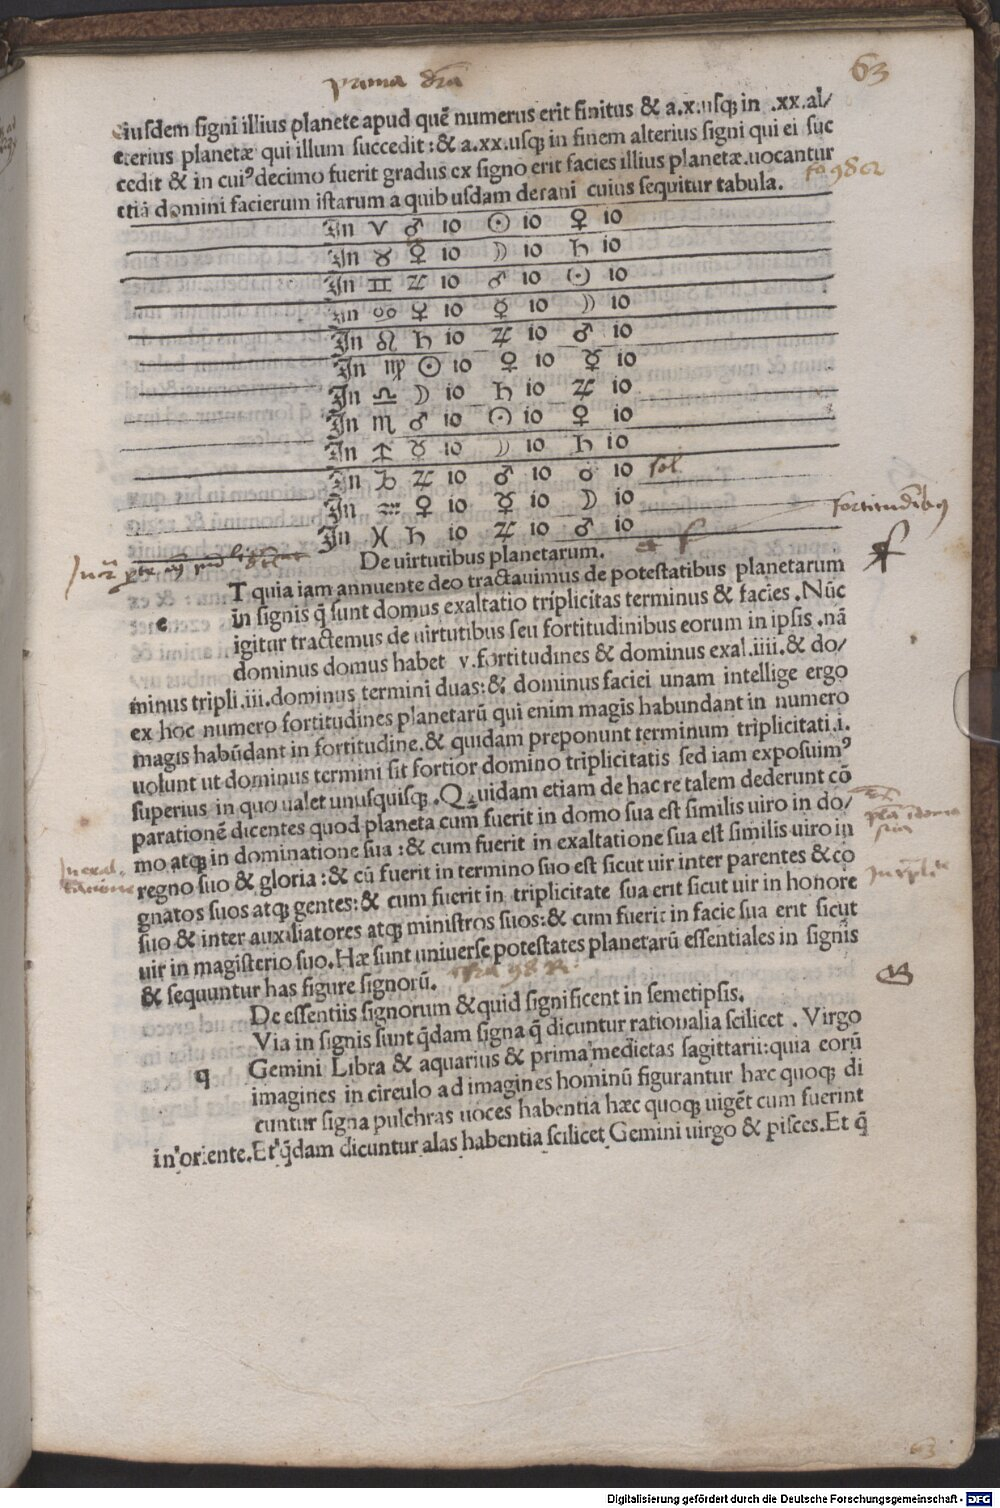 prima dr̃a
63
eiusdem signi illius planete apud quē numerus erit finitus & a.x.usq; in .xx.al/
eterius planetæ qui illum succedit:& a.xx.usq; in finem alterius signi qui ei suc
cedit & in cuiꝰ decimo fuerit gradus ex signo erit facies illius planetæ.uocantur
etiā domini facierum istarum a quibusdam decani cuius sequitur tabula.
In ♈ ♂ 10 ☉ 10 ♀ 10
In ♉ ☿ 10 ☽ 10 ♄ 10
In ♊ ♃ 10 ♂ 10 ☉ 10
In ♋ ♀ 10 ☿ 10 ☽ 10
In ♌ ♄ 10 ♃ 10 ♂ 10
In ♍ ☉ 10 ♀ 10 ☿ 10
In ♎ ☽ 10 ♄ 10 ♃ 10
In ♏ ♂ 10 ☉ 10 ♀ 10
In ♐ ☿ 10 ☽ 10 ♄ 10
In ♑ ♃ 10 ♂ 10 ☌ 10 sol
In ♒ ♀ 10 ☿ 10 ☽ 10
In ♓ ♄ 10 ♃ 10 ♂ 10
fortitudībꝰ
De uirtutibus planetarum.
T quia iam annuente deo tractauimus de potestatibus planetarum
e in signis q̄ sunt domus exaltatio triplicitas terminus & facies .Nūc
igitur tractemus de uirtutibus seu fortitudinibus eorum in ipsis .nā
dominus domus habet v.fortitudines & dominus exal.iiii.& do/
minus tripli.iii.dominus termini duas:& dominus faciei unam intellige ergo
ex hoc numero fortitudines planetarū qui enim magis habundant in numero
magis habūdant in fortitudine.& quidam preponunt terminum triplicitati.i.
uolunt ut dominus termini sit fortior domino triplicitatis sed iam exposuimꝰ
superius in quo ualet unusquisq; .Quidam etiam de hac re talem dederunt cō
parationē dicentes quod planeta cum fuerit in domo sua est similis uiro in do/
mo atq; in dominatione sua :& cum fuerit in exaltatione sua est similis uiro in
regno suo & gloria :& cū fuerit in termino suo est sicut uir inter parentes & co
gnatos suos atq; gentes:& cum fuerit in triplicitate sua erit sicut uir in honore
suo & inter auxiliatores atq; ministros suos:& cum fuerit in facie sua erit sicut
uir in magisterio suo.Hæ sunt uniuerse potestates planetarū essentiales in signis
& sequuntur has figure signorū.
De essentiis signorum & quid significent in semetipsis.
Via in signis sunt q̄dam signa q̄ dicuntur rationalia scilicet . Virgo
q Gemini Libra & aquarius & prima medietas sagittarii:quia eorū
imagines in circulo ad imagines hominū figurantur hæc quoq; di
cuntur signa pulchras uoces habentia hæc quoq; uigēt cum fuerint
in oriente.Et q̄dam dicuntur alas habentia scilicet Gemini uirgo & pisces.Et q̄
63
Digitalisierung gefördert durch die Deutsche Forschungsgemeinschaft - DFG